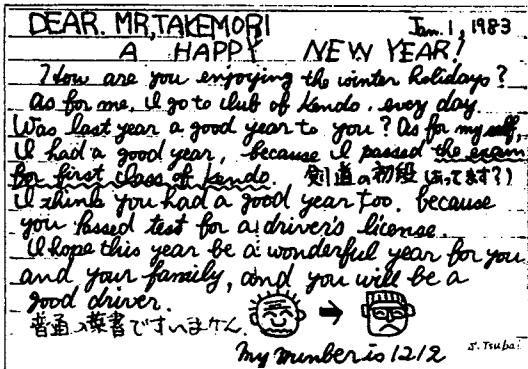 DEAR. MR, TAKEMORI Jan. 1, 1983
A HAPPY NEW YEAR!
How are you enjoying the winter holidays?
As for me, I go to club of Kendo. every day
Was last year a good year to you? As for my self,
I had a good year, because I passed the exam
for first class of kendo. 剣道の初段 (あってます?)
I think you had a good year too. because
you passed test for a driver's license.
I hope this year be a wonderful year for you
and your family, and you will be a
good driver.
普通の葉書ですいません.
My number is 1212 J. Tsubai